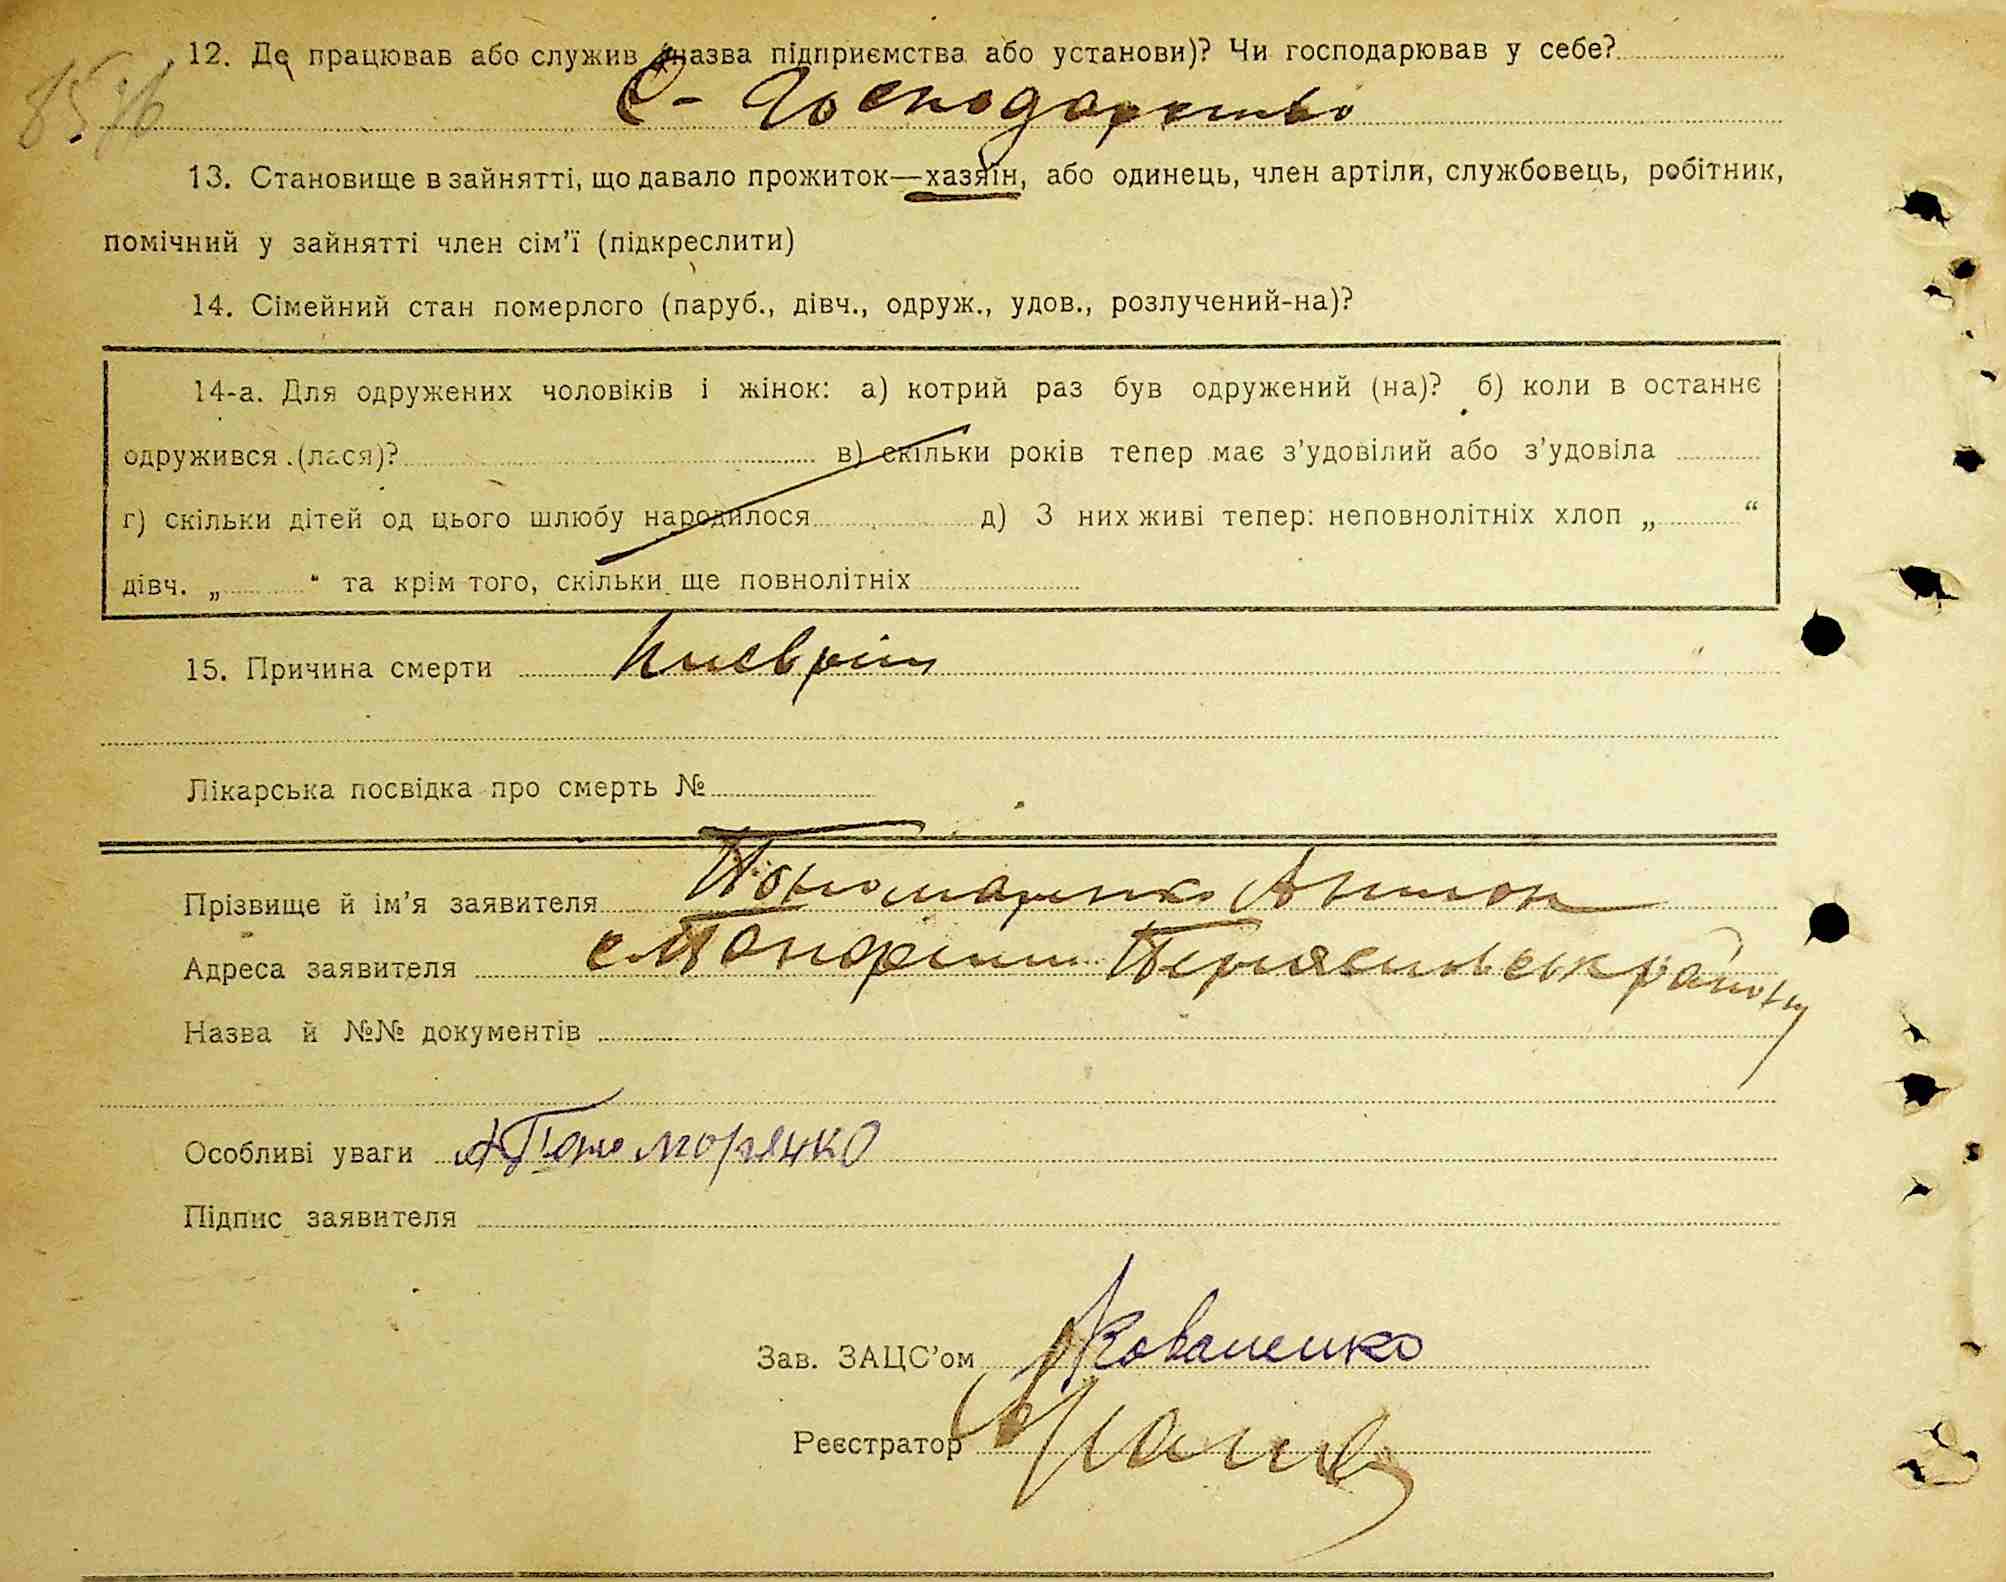 12. Де працював або служив (назва підприємства або установи)? Чи господарював у себе?
С - Господарство
13. Становище в зайнятті, що давало прожиток—хазяїн, або одинець, член артіли, службовець, робітник,
помічний у зайнятті член сім’ї (підкреслити)
14. Сімейний стан померлого (паруб., дівч., одруж., удов., розлучений-на)?
14-а. Для одружених чоловіків і жінок: а) котрий раз був одружений (на)? б) коли в останнє
одружився (лася)? в) скільки років тепер має з’удовілий або з’удовіла
г) скільки дітей од цього шлюбу народилося д) З них живі тепер: неповнолітніх хлоп „ “
дівч. „ “ та крім того, скільки ще повнолітніх
15. Причина смерти Плеврит
Лікарська посвідка про смерть №
Прізвище й ім’я заявителя Пономаренко Антон
Адреса заявителя району
Назва й №№ документів
Особливі уваги А Пономоренко
Підпис заявителя
Зав. ЗАЦС’ом Коваленко
Реєстратор